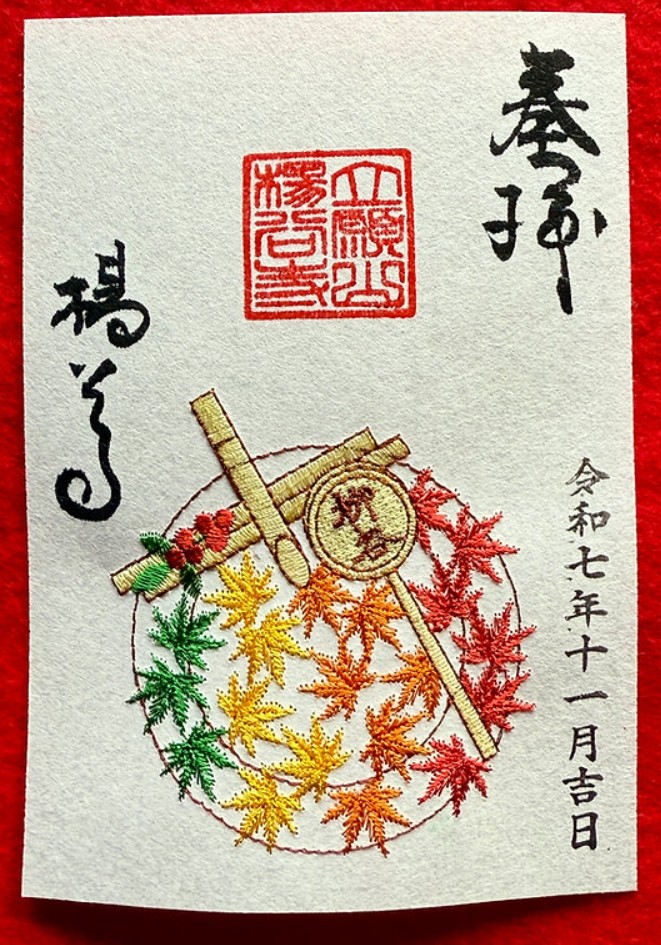 奉拝
立願山
楊谷寺
楊谷寺
柳谷
令和七年十一月吉日